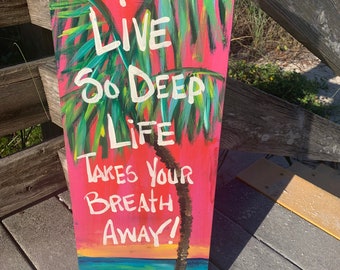 LIVE
SO DEEP
LIFE
TAKES YOUR
BREATH
AWAY!